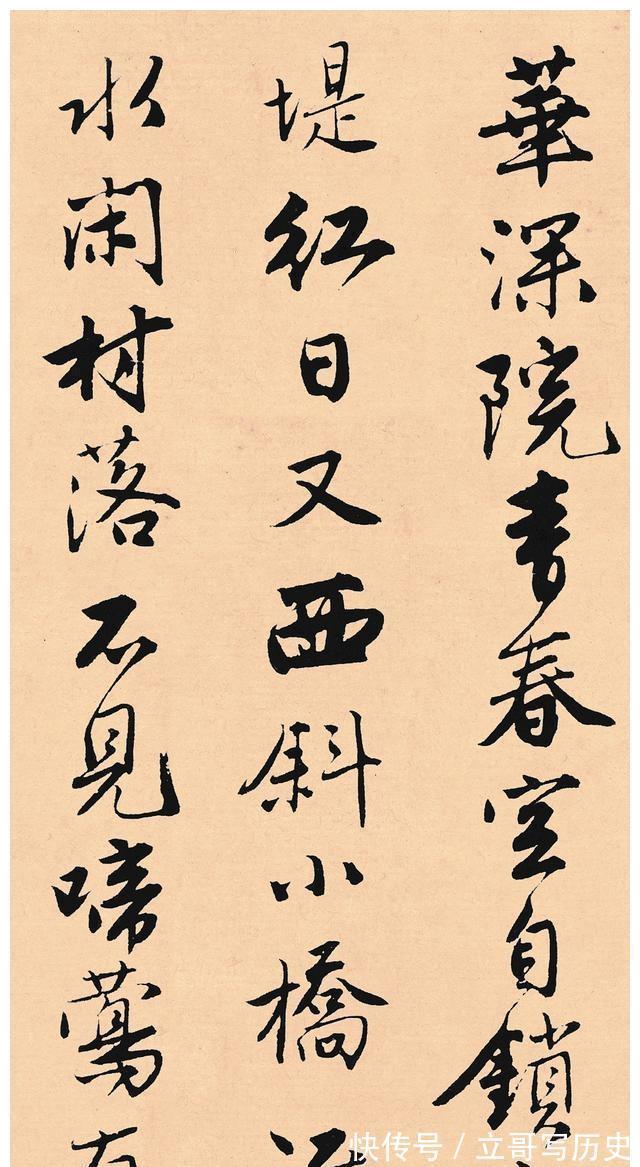 華深院青春空自鎖
堤紅日又西斜小橋
水閑村落不見啼鶯
快传号 / 立哥写历史